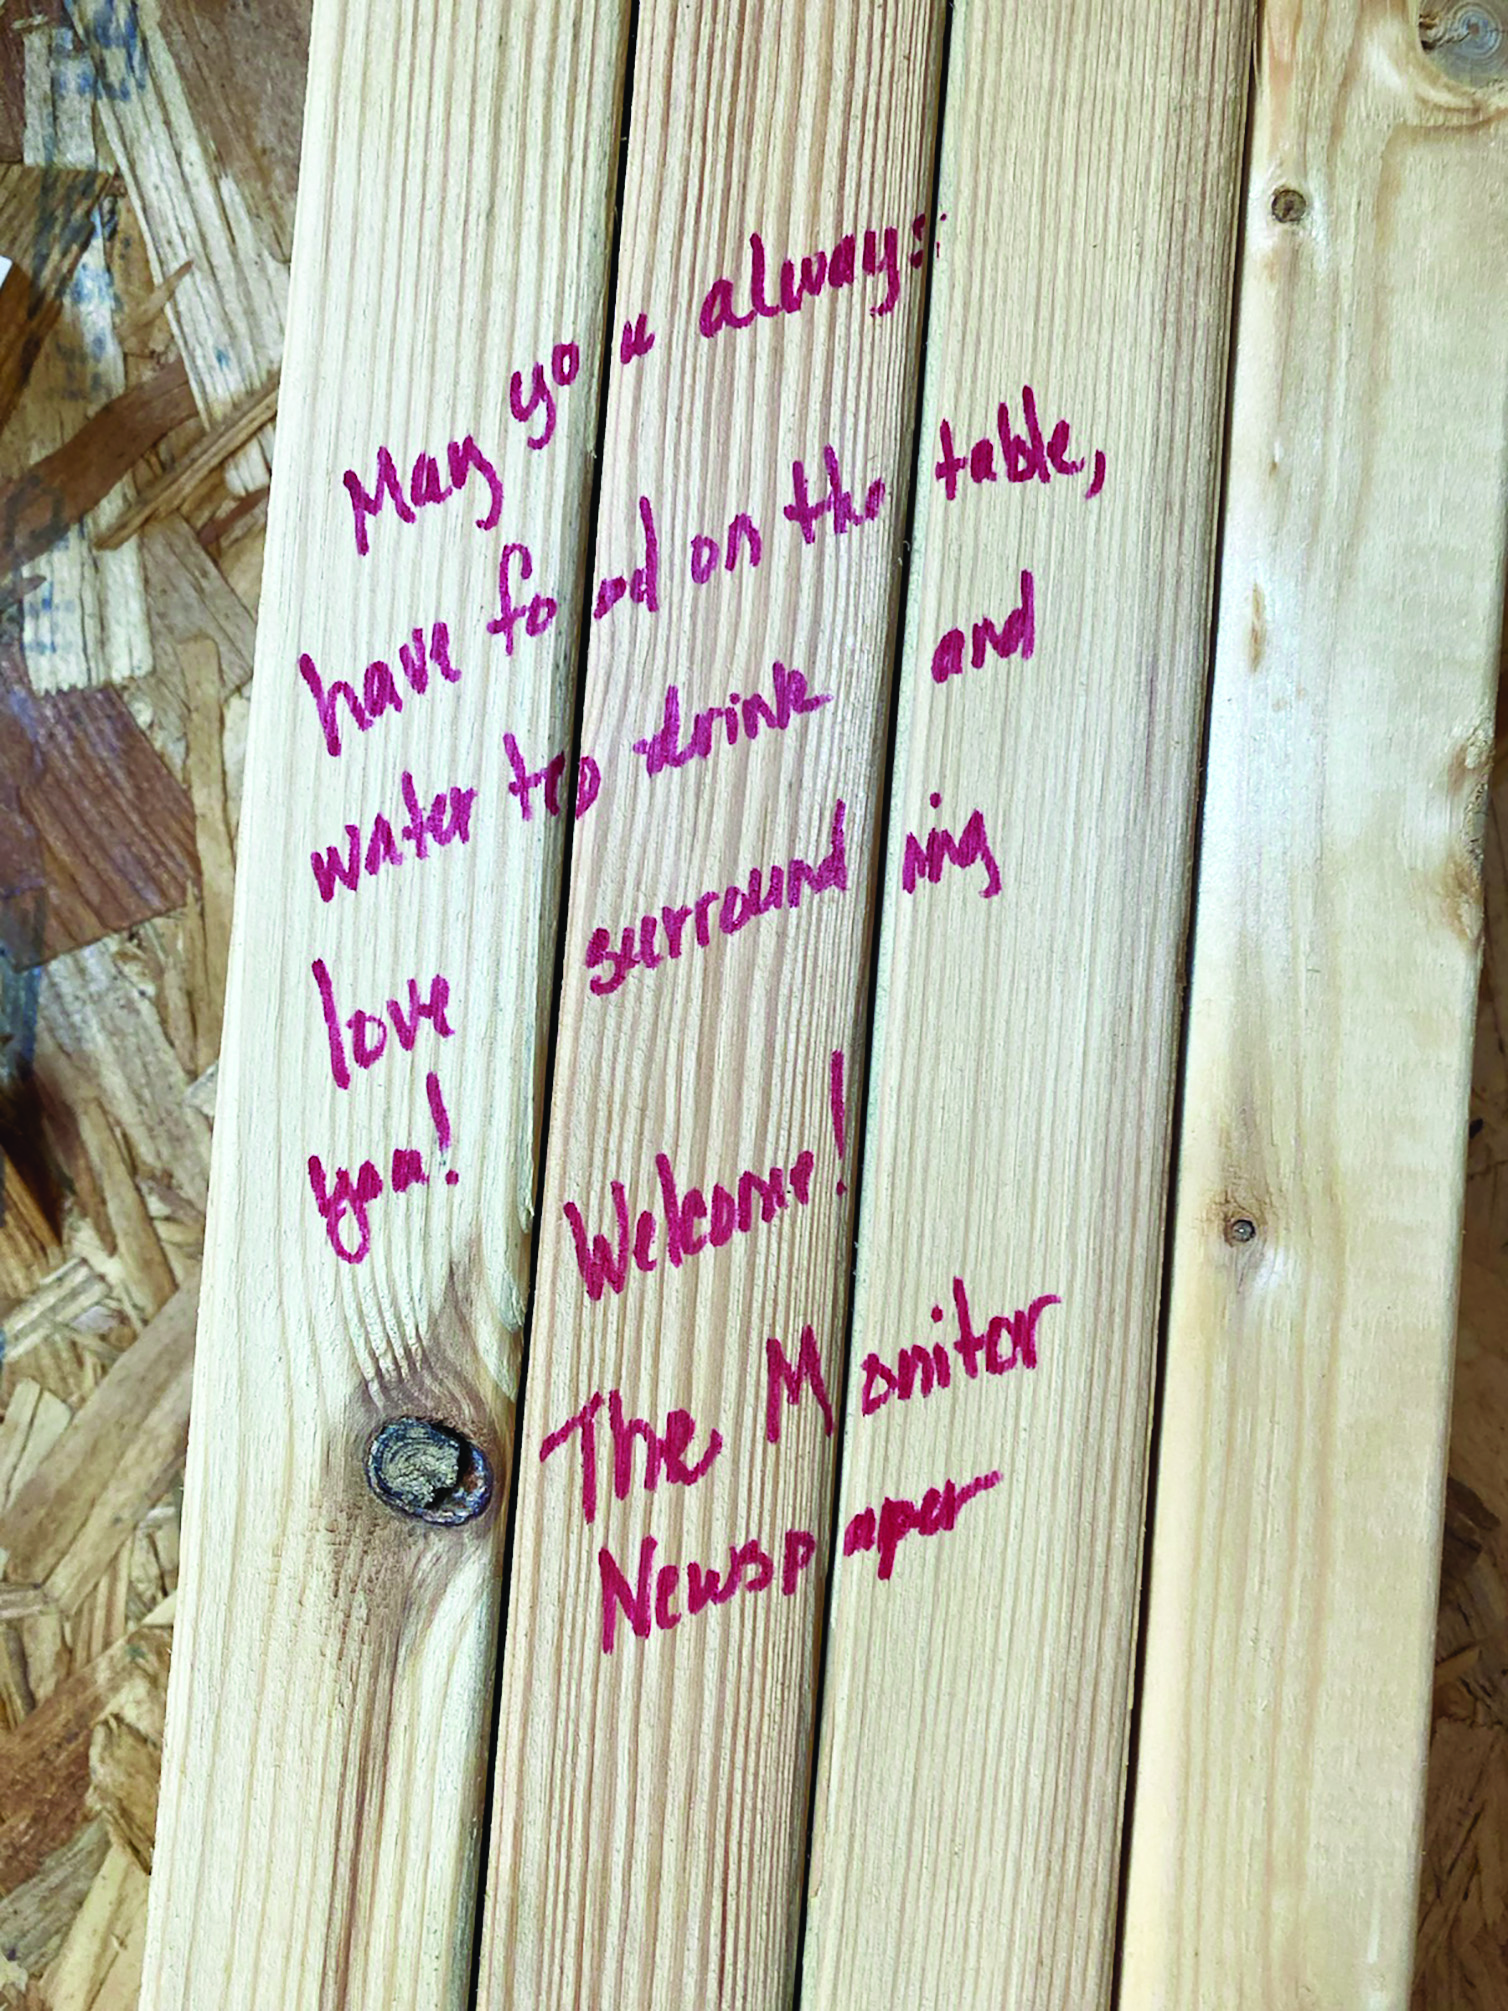 May you always:
have food on the table,
water to drink and
love surrounding
you!
Welcome!
The Monitor
Newspaper